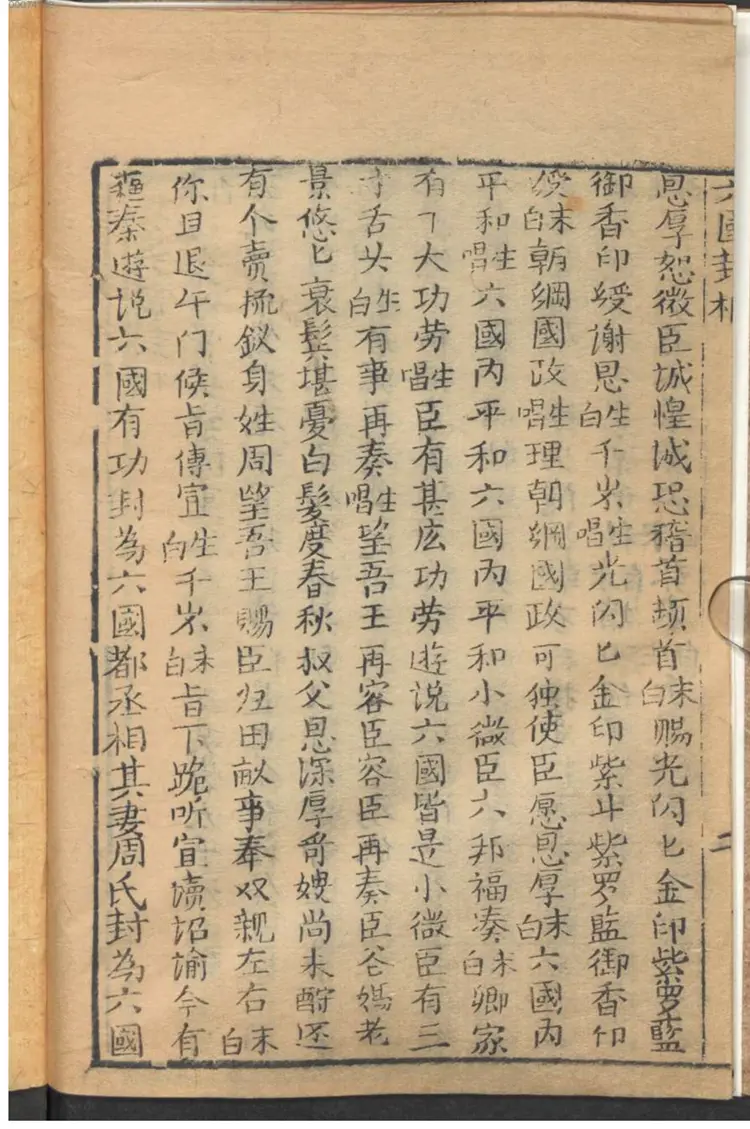 六國封相
二
恩厚恕微臣誠惶诚恐稽首頓首末白赐光闪匕金印紫夢藍
御香印綬谢恩生白千岁生唱光闪匕金印紫斗紫罗藍御香印
綬末白朝綱國政生唱理朝綱國政可独使臣愿恩厚末白六國内
平和生唱六國丙平和六國丙平和小微臣六邦福凑末白卿家
有了大功劳生唱臣有甚庅功劳遊说六國皆是小微臣有三
寸舌头生白有事再奏生唱望吾王再容臣容臣再奏臣爸媽老
景悠匕衰髩堪憂白髮度春秋叔父恩深厚哥嫂尚未酧还
有个賣梳釵身姓周望吾王賜臣归田畝事奉双親左右末白
你且退午门候旨傳宣生白千岁末白旨下跪听宣读诏諭今有
蘓秦遊说六國有功封為六國都丞相其妻周氏封為六國